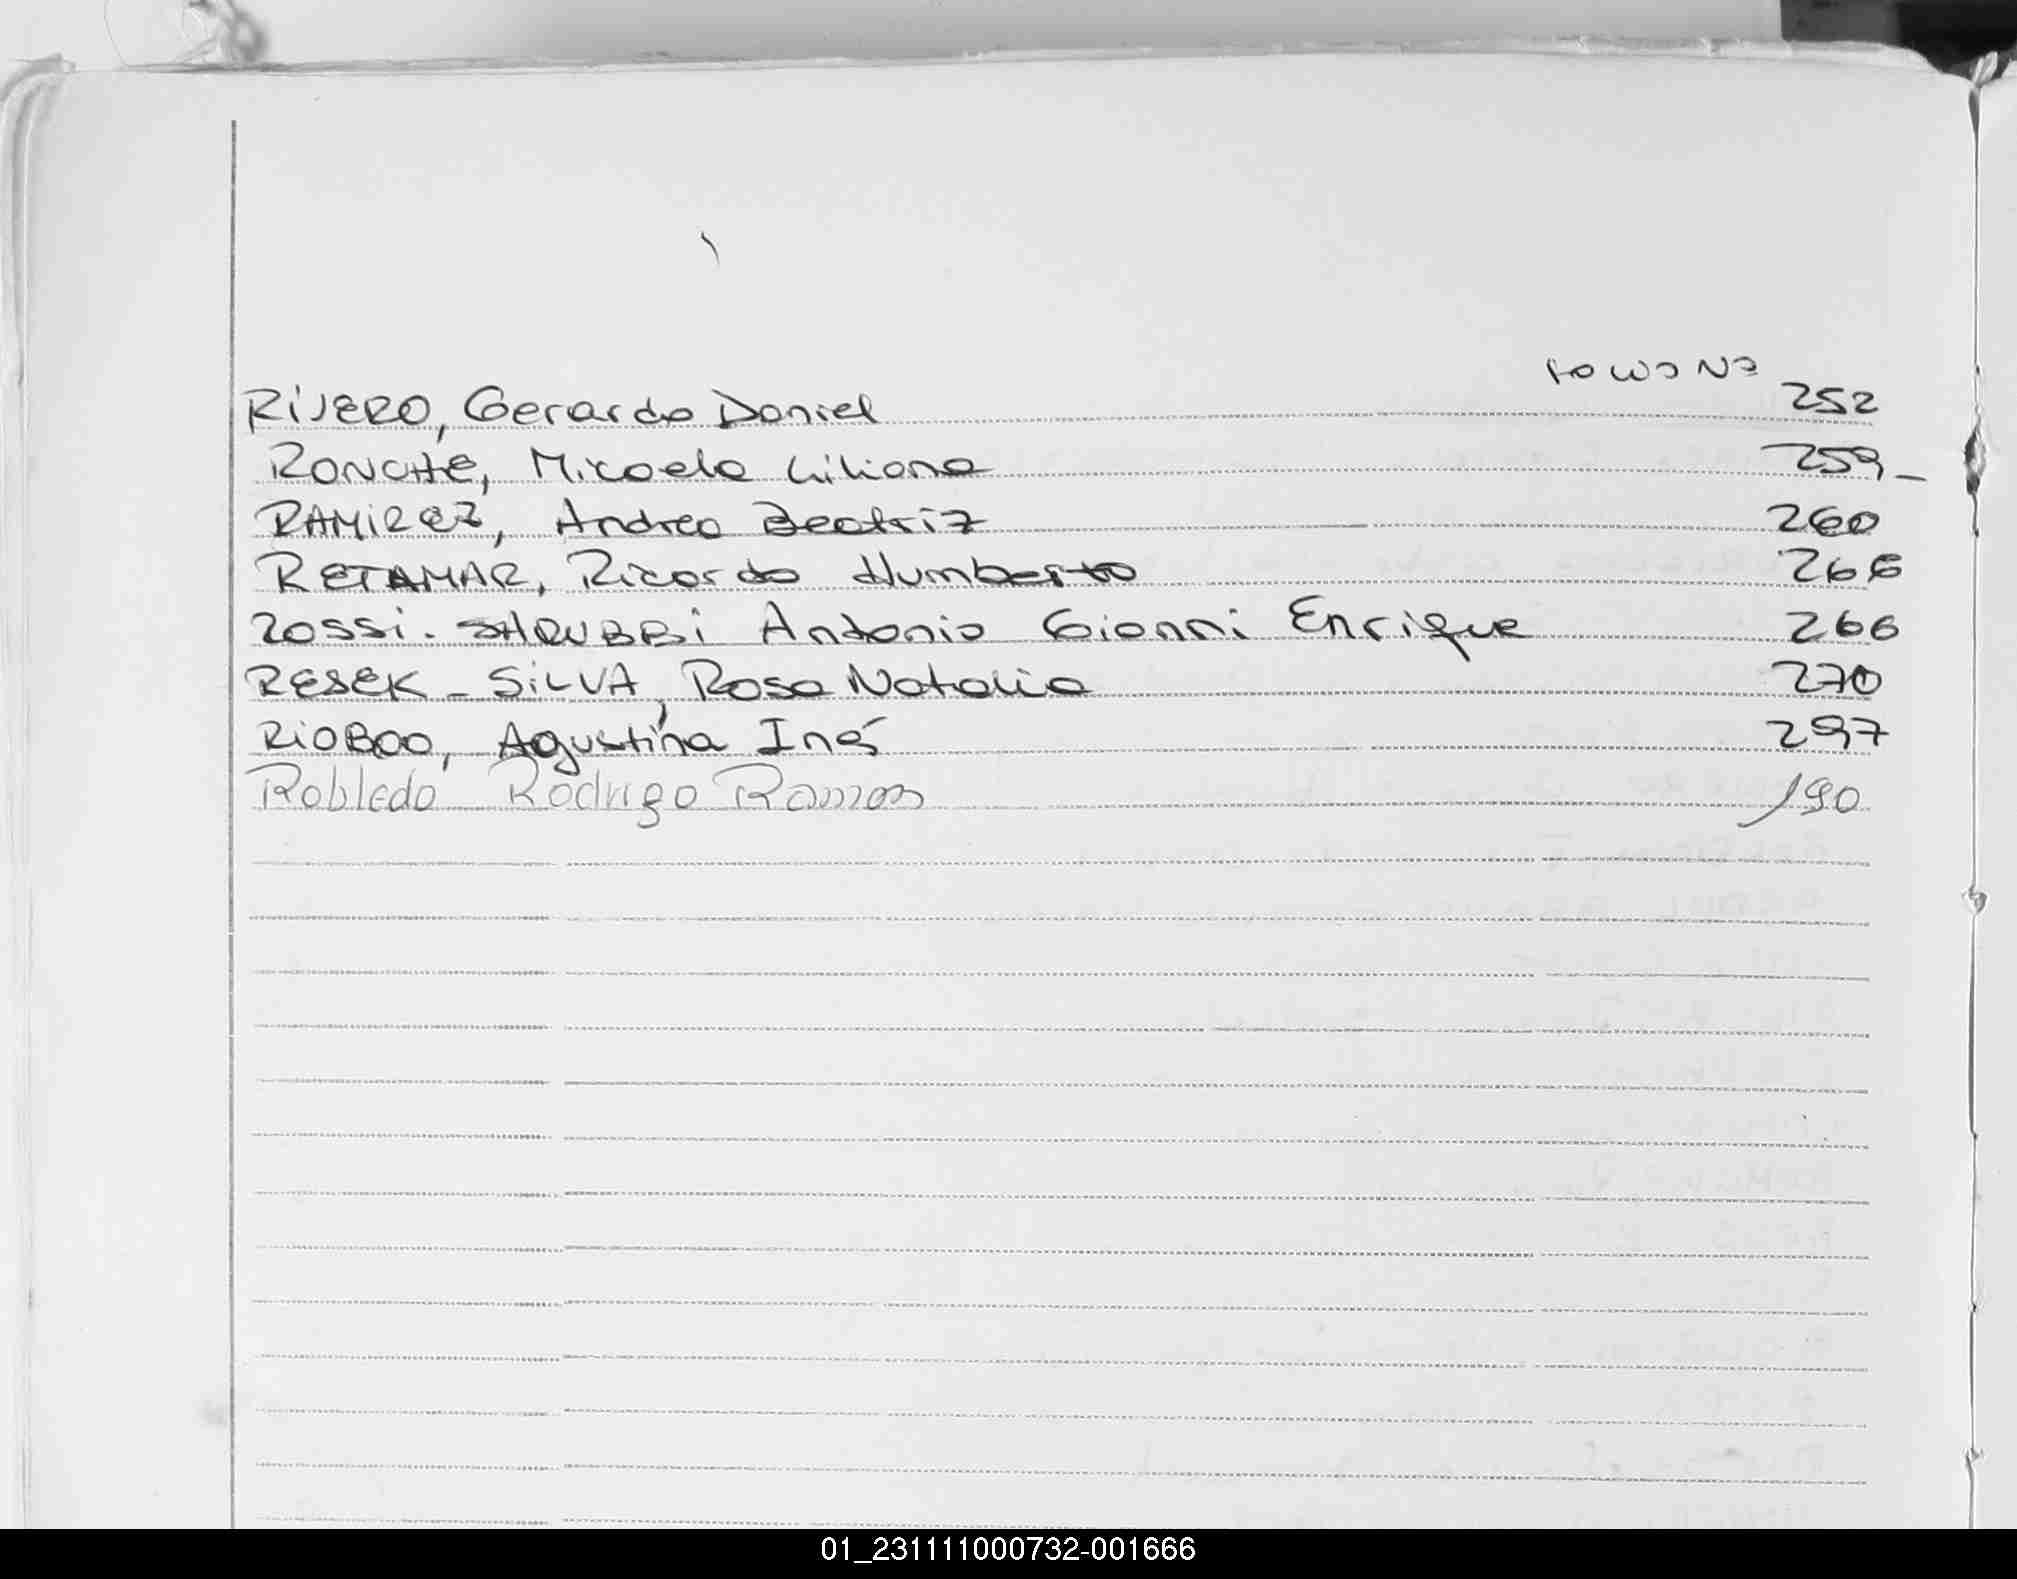 FOLIO Nº
RIVERO, Gerardo Daniel 252
RONCHE, Micaela Liliana 259-
RAMIREZ, Andrea Beatriz 260
RETAMAR, Ricardo Humberto 266
ROSSI. SHRUBBI Antonio Gionni Enrique 266
RESEK - SILVA, Rosa Natalia 270
RIOBOO, Agustina Iné 297
Robledo Rodrigo Ramon 190
01_231111000732-001666